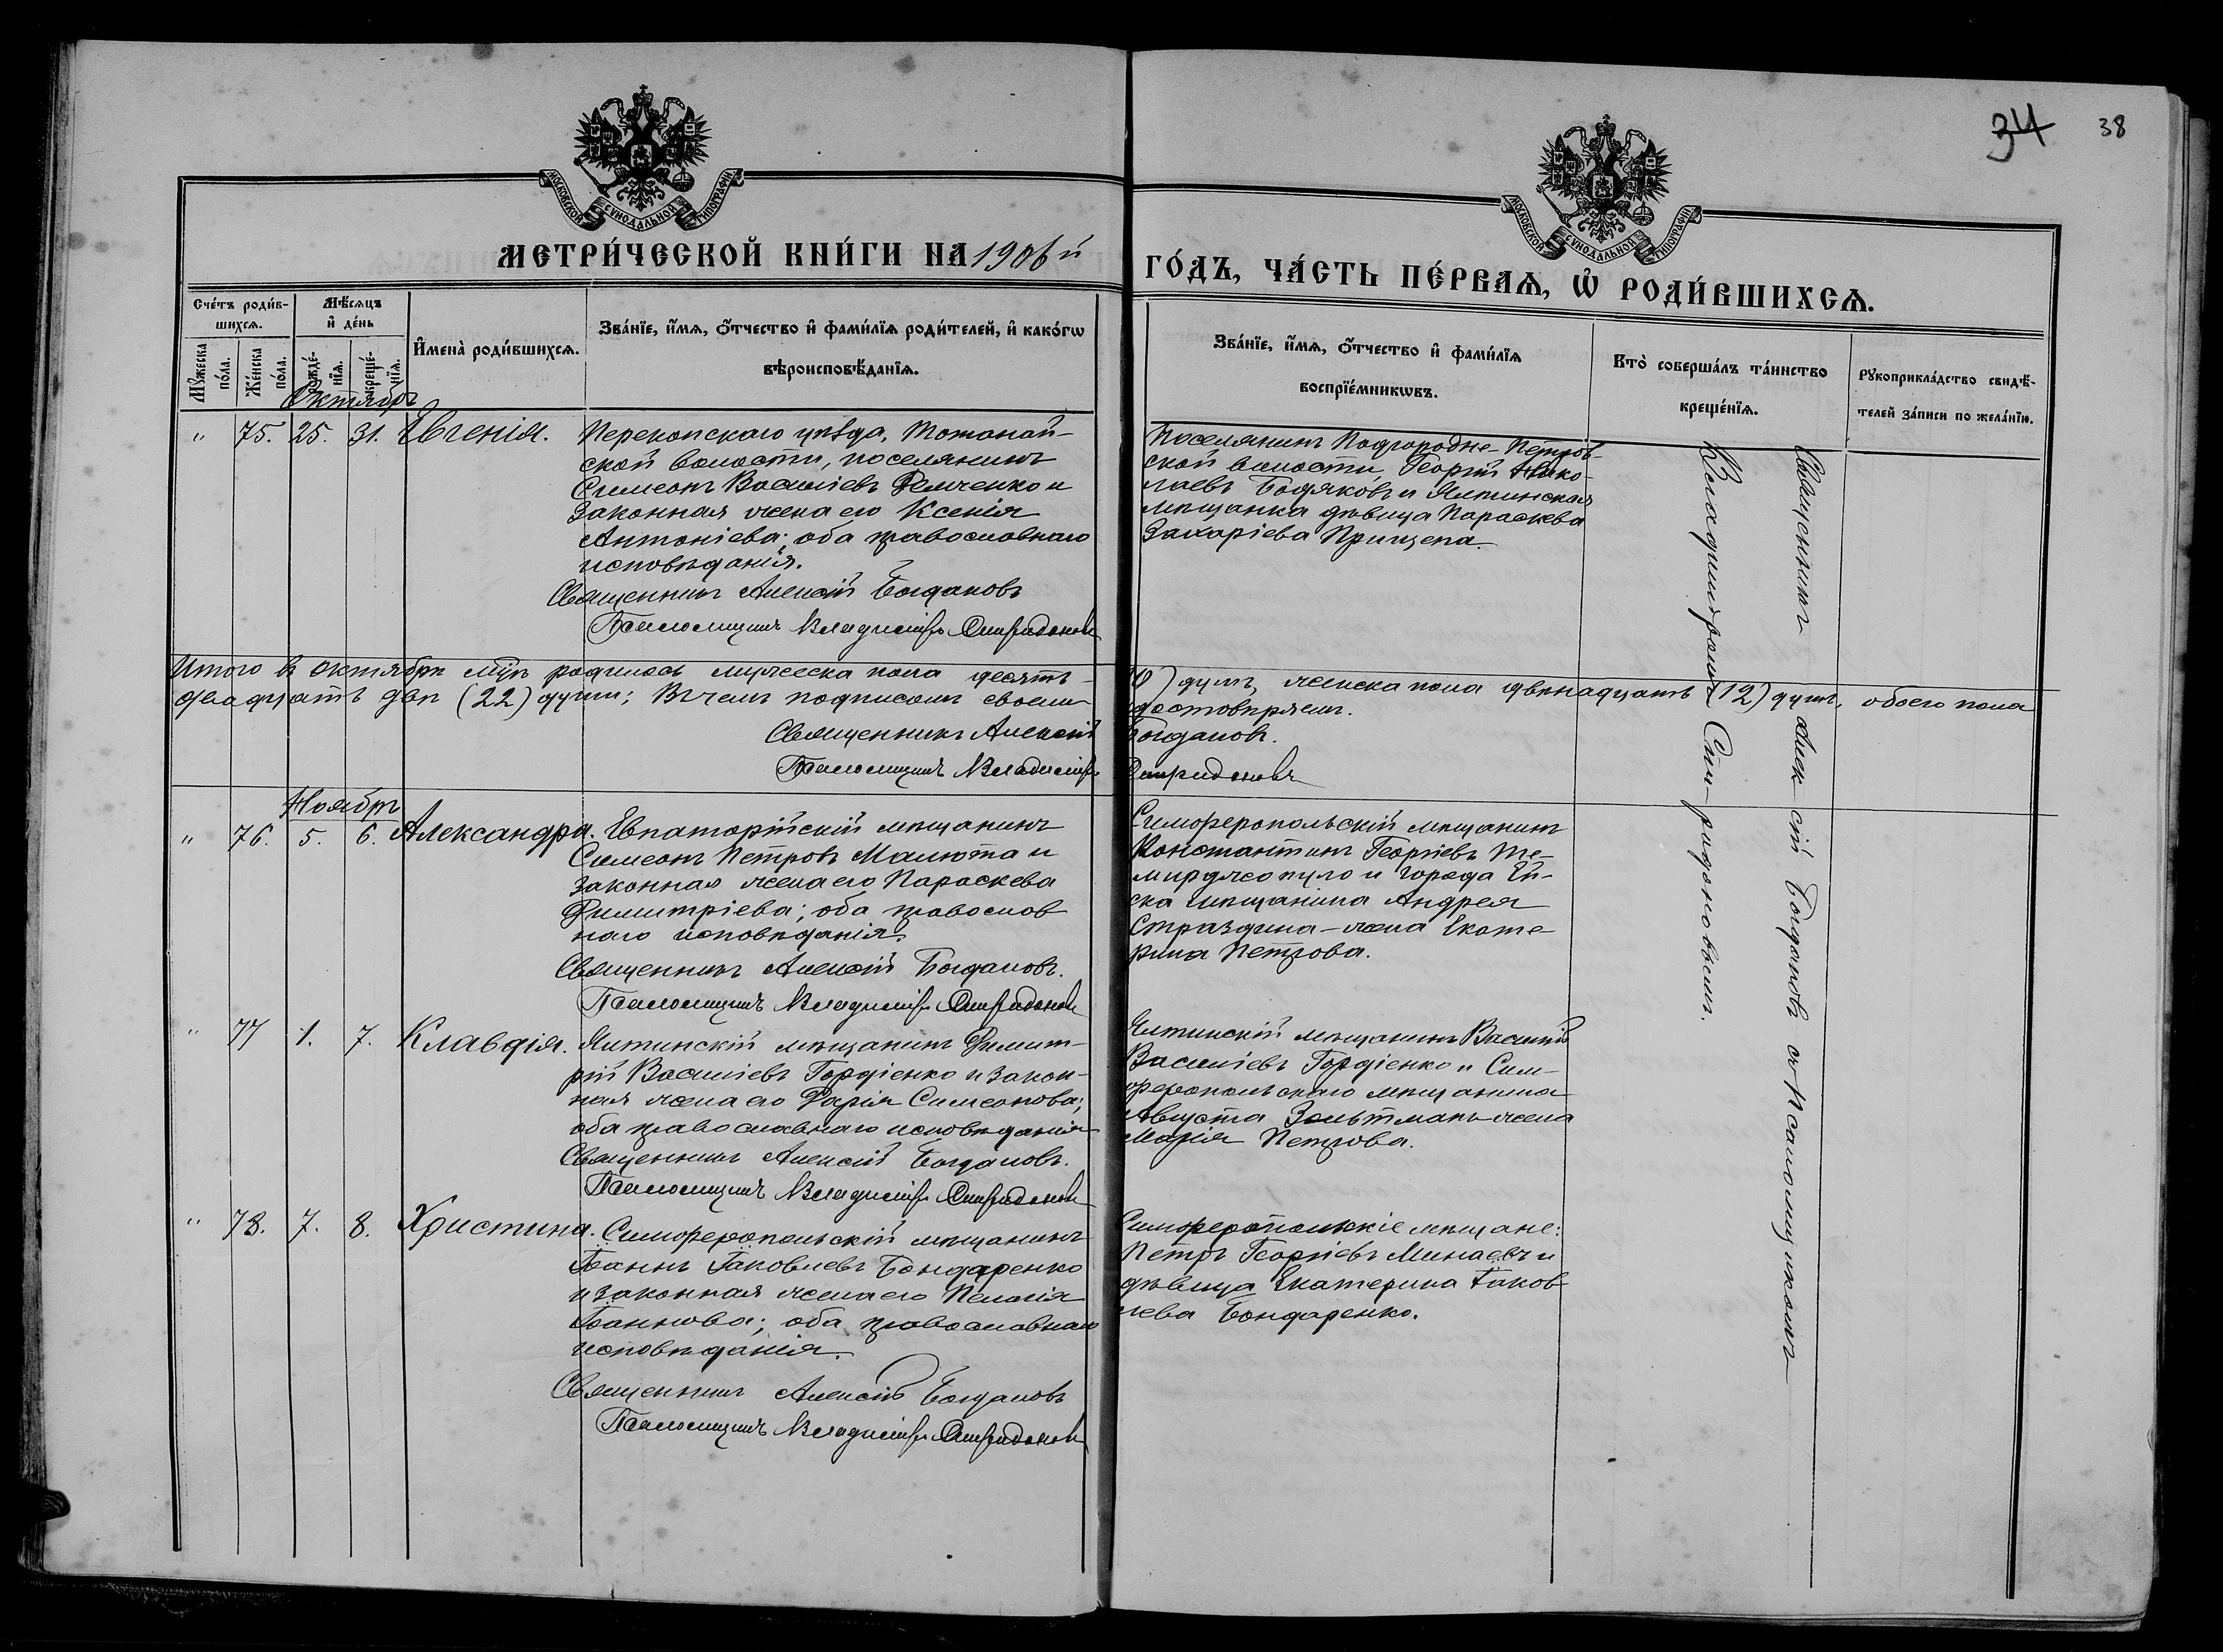 34 38
МОСКОВСКОЙ СѴНОДАЛЬНОЙ ТИПОГРАФІИ
МОСКОВСКОЙ СѴНОДАЛЬНОЙ ТИПОГРАФІИ
МЕТРИ́ЧЕСКОЙ КНИ́ГИ НА 1906й
ГО́ДЪ, ЧА́СТЬ ПЕ́РВАѦ, Ѡ҆ РОДИ́ВШИХСѦ.
Сче́тъ роди́в-
шихсѧ.
Мꙋ́жеска по́ла.
Же́нска по́ла.
Мѣ́сѧцъ
и҆ де́нь
рожде́-
нїѧ.
креще́-
нїѧ.
И҆мена̀ роди́вшихсѧ.
Зва́нїе, и҆́мѧ, ѻ҆́тчество и҆ фами́лїѧ роди́телей, и҆ како́гѡ
вѣроисповѣ́данїѧ.
Зва́нїе, и҆́мѧ, ѻ҆́тчество и҆ фами́лїѧ
воспрїе́мникѡвъ.
Кто̀ соверша́лъ та́инство
креще́нїѧ.
Рꙋкоприкла́дство свидѣ́-
телей за́писи по жела́нїю.
Октябрь
" 75. 25. 31. Евгенія.
Перекопскаго уѣзда, Тотанай-
ской волости, поселянинъ
Симеонъ Василіевъ Демченко и
законная жена его Ксенія
Антоніева; оба православнаго
исповѣданія.
Священникъ Алексій Богдановъ
Псаломщикъ Владиміръ Спиридоновъ
Поселянинъ Подгородне-Петров-
ской волости, Георгій Нико-
лаевъ Бодяковъ и Ялтинская
мѣщанка дѣвица Параскева
Захаріева Прищепа.
Священникъ Алексій Богдановъ съ псаломщикомъ
Владиміромъ Спиридоновымъ.
Итого въ октябрѣ мцѣ родилось мужеска пола десять (10) душъ, женска пола двѣнадцать (12) душъ, обоего пола
двадцать двѣ (22) души; въ чемъ подписомъ своимъ удостовѣряемъ.
Священникъ Алексій Богдановъ.
Псаломщикъ Владиміръ Спиридоновъ
Ноябрь
" 76. 5. 6. Александра.
Евпаторійскій мѣщанинъ
Симеонъ Петровъ Малюта и
законная жена его Параскева
Димитріева; оба православ
наго исповѣданія.
Священникъ Алексій Богдановъ.
Псаломщикъ Владиміръ Спиридоновъ
Симферопольскій мѣщанинъ
Константинъ Георгіевъ Те-
мирджопуло и города Ей-
ска мѣщанина Андрея
Страздина - жена Екате-
рина Петрова.
" 77 1. 7. Клавдія.
Ялтинскій мѣщанинъ Димит-
рій Василіевъ Гордіенко и закон-
ная жена его Дарія Симеонова;
оба православнаго исповѣданія
Священникъ Алексій Богдановъ.
Псаломщикъ Владиміръ Спиридоновъ
Ялтинскій мѣщанинъ Василій
Василіевъ Гордіенко и Сим-
феропольскаго мѣщанина
Августа Зельтманъ жена
Марія Петрова.
" 78. 7. 8. Христина.
Симферопольскій мѣщанинъ
Іоаннъ Іаковлевъ Бондаренко
и законная жена его Пелагія
Іоаннова; оба православнаго
исповѣданія.
Священникъ Алексій Богдановъ
Псаломщикъ Владиміръ Спиридоновъ
Симферопольскіе мѣщане:
Петръ Георгіевъ Минаевъ и
дѣвица Екатерина Іаков
лева Бондаренко.